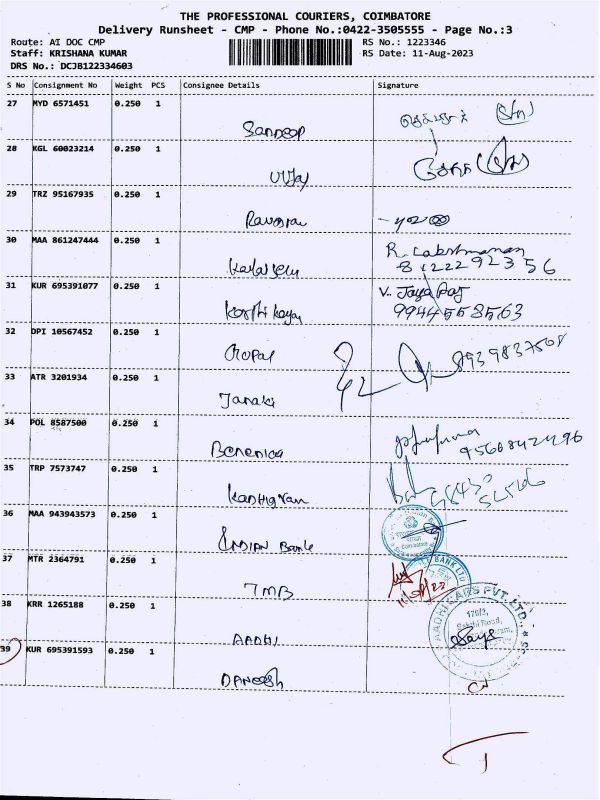 THE PROFESSIONAL COURIERS, COIMBATORE
Delivery Runsheet - CMP - Phone No.:0422-3505555 - Page No.:3
Route: AI DOC CMP RS No.: 1223346
Staff: KRISHANA KUMAR RS Date: 11-Aug-2023
DRS No.: DCJB122334603
S No Consignment No Weight PCS Consignee Details Signature
27 MYD 6571451 0.250 1
Sandeep
28 KGL 60023214 0.250 1
Vijay
29 TRZ 95167935 0.250 1
30 MAA 861247444 0.250 1 R. Lakshmanan
8122292356
31 KUR 695391077 0.250 1 V. Jaya Raj
9944558563
32 DPI 10567452 0.250 1
Gopal 8939837508
33 ATR 3201934 0.250 1
Janaki
34 POL 8587500 0.250 1
35 TRP 7573747 0.250 1
36 MAA 943943573 0.250 1
INDIAN Bank
37 MTR 2364791 0.250 1 BANK LTD
TMB
38 KRR 1265188 0.250 1 AADHI CARS PVT. LTD.
AADHI
39 KUR 695391593 0.250 1
DANEESH